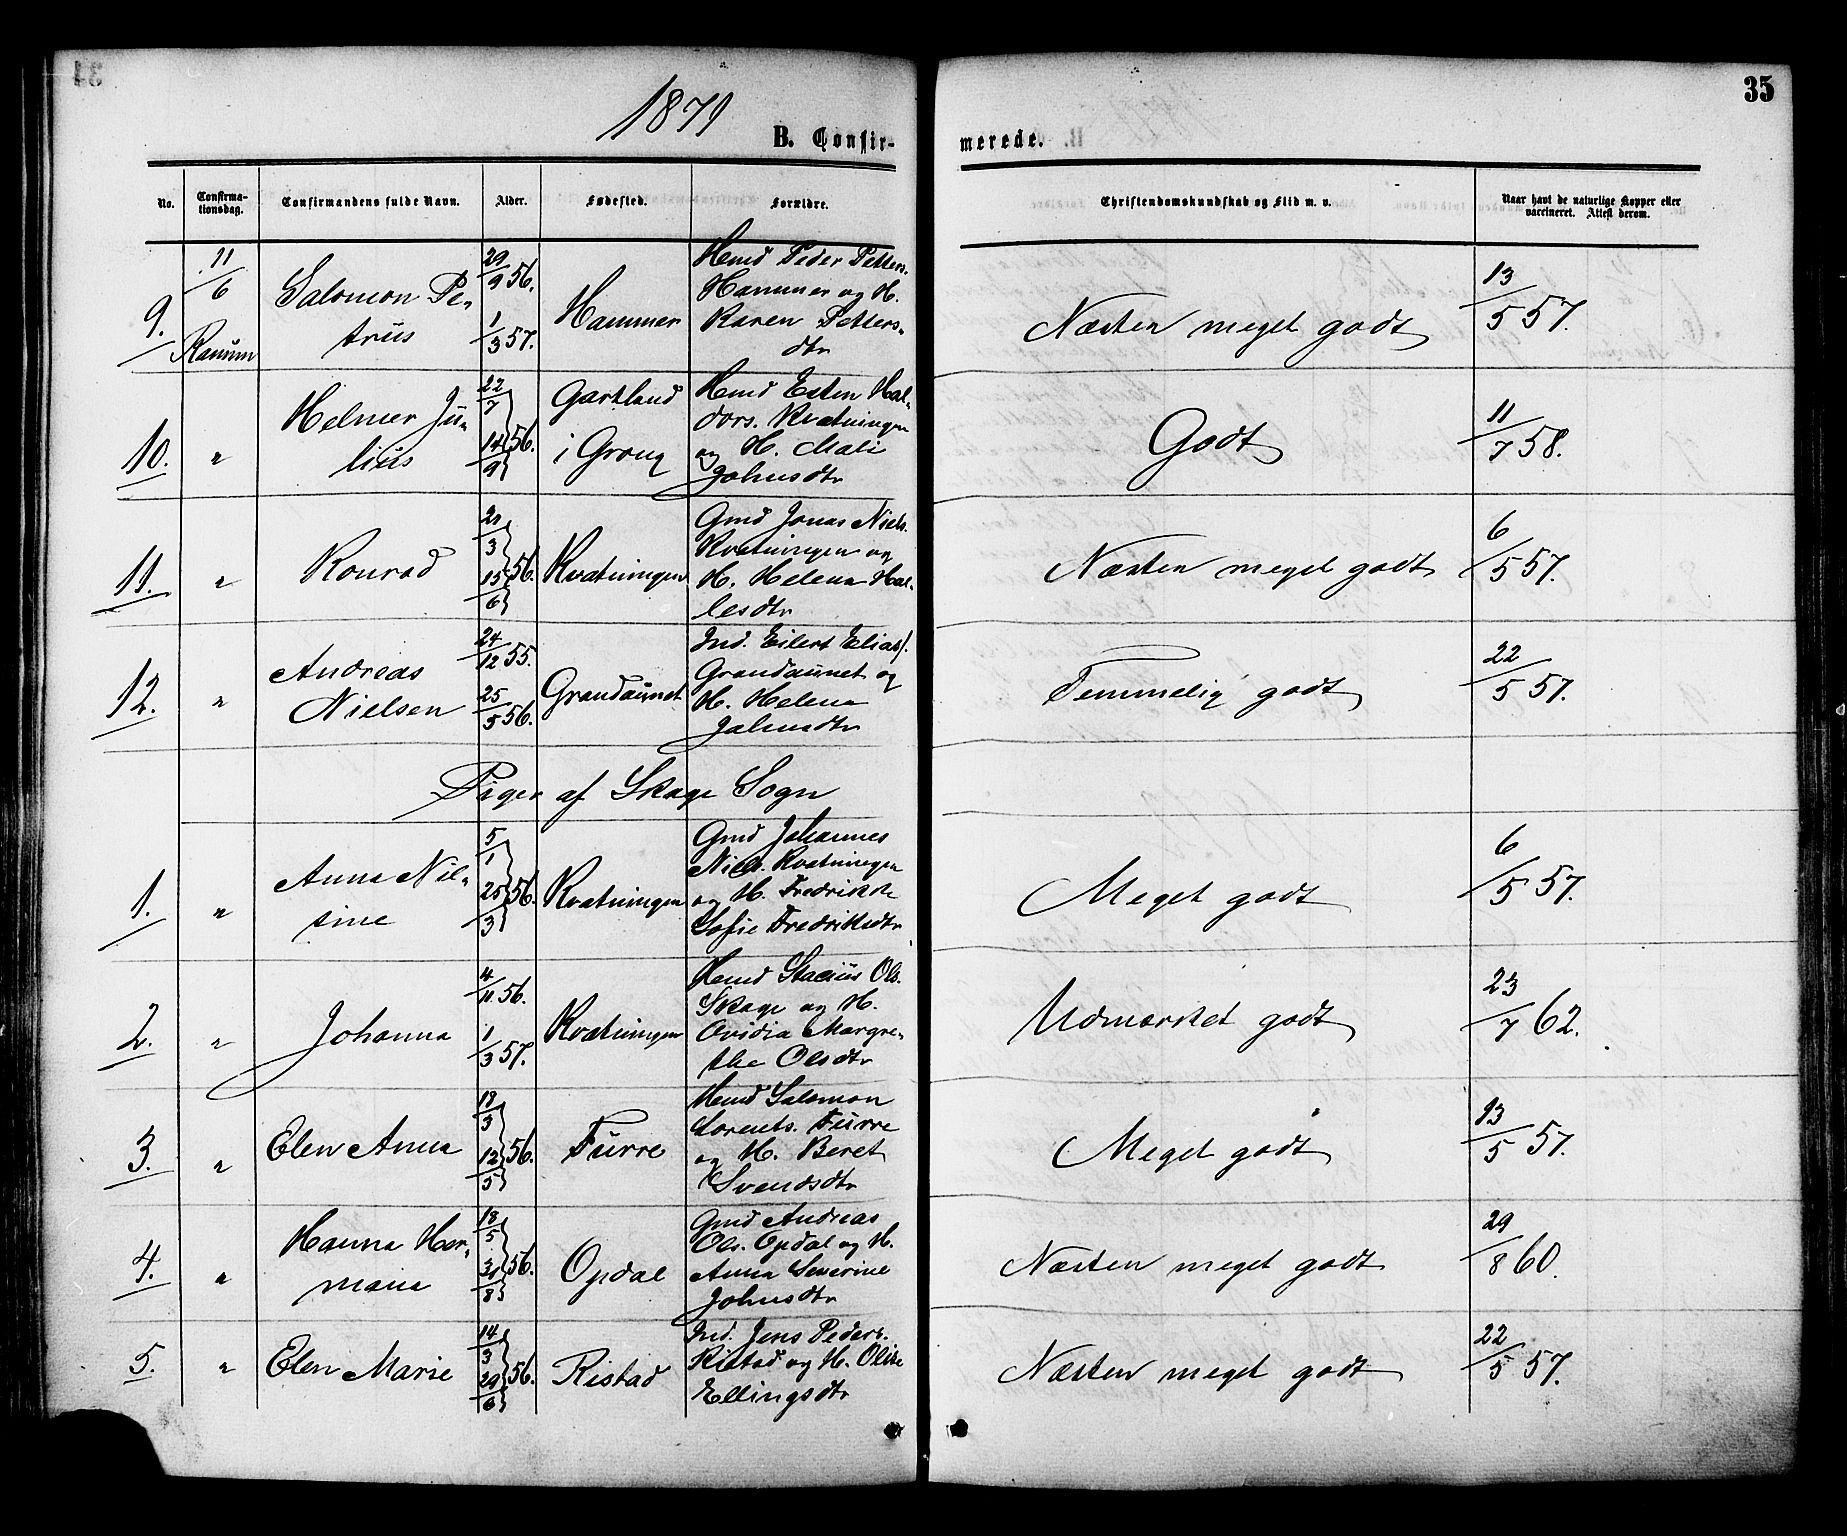 34
35
1871
B. Confir-
merede.
No.
Confirma-
tionsdag.
Confirmandens fulde Navn.
Alder.
Fødested.
Forældre.
Christendomskundskab og Flid m. v.
Naar havt de naturlige Kopper eller
vaccineret. Attest derom.
9.
11/6
Ranum
Salomon Pe-
trus
29/9 56.
1/3 57.
Hammer
Hmd Peder Petters.
Hammer og H.
Karen Petters-
dtr
Næsten meget godt
13/5 57.
10.
"
Helmer Ju-
lius
22/7
14/9 56.
Gartland
i Grong
Hmd Esten Hal-
dors. Kvatningen
og H. Mali
Johnsdtr
Godt
11/7 58.
11.
"
Konrad
21/3
15/6 56.
Kvatningen
Gmd Jonas Niels.
Kvatningen og
H. Helena Hal-
lesdtr
Næsten meget godt
6/5 57.
12.
"
Andreas
Nielsen
24/12 55.
25/5 56.
Grandaunet
Ind. Eilert Elias/.
Grandaunet og
H. Helena
Johnsdtr
Temmelig godt
22/5 57.
Piger af Skage Sogn
1.
"
Anna Nil-
sine
5/1
25/3 56.
Kvatningen
Gmd Johannes
Niels. Kvatningen
og H. Fredrikke
Sofie Fredriksdtr
Meget godt
6/5 57.
2.
"
Johanna
4/11 56.
1/3 57.
Kvatningen
Hmd Stacius Ols.
Skage og H.
Ovidia Margre-
the Olsdtr
Udmærket godt
23/7 62.
3.
"
Elen Anna
18/3
12/5 56.
Furre
Hmd Salomon
Lorents. Furre
og H. Beret
Svendsdtr
Meget godt
13/5 57.
4.
"
Hanna Her-
mana
18/5
31/8 56.
Opdal
Gmd Andreas
Ols. Opdal og H.
Anna Severine
Johnsdtr
Næsten meget godt
29/8 60.
5.
"
Elen Marie
14/3
29/6 56.
Ristad
Ind. Jens Peders.
Ristad og H. Olise
Ellingsdtr
Næsten meget godt
22/5 57.